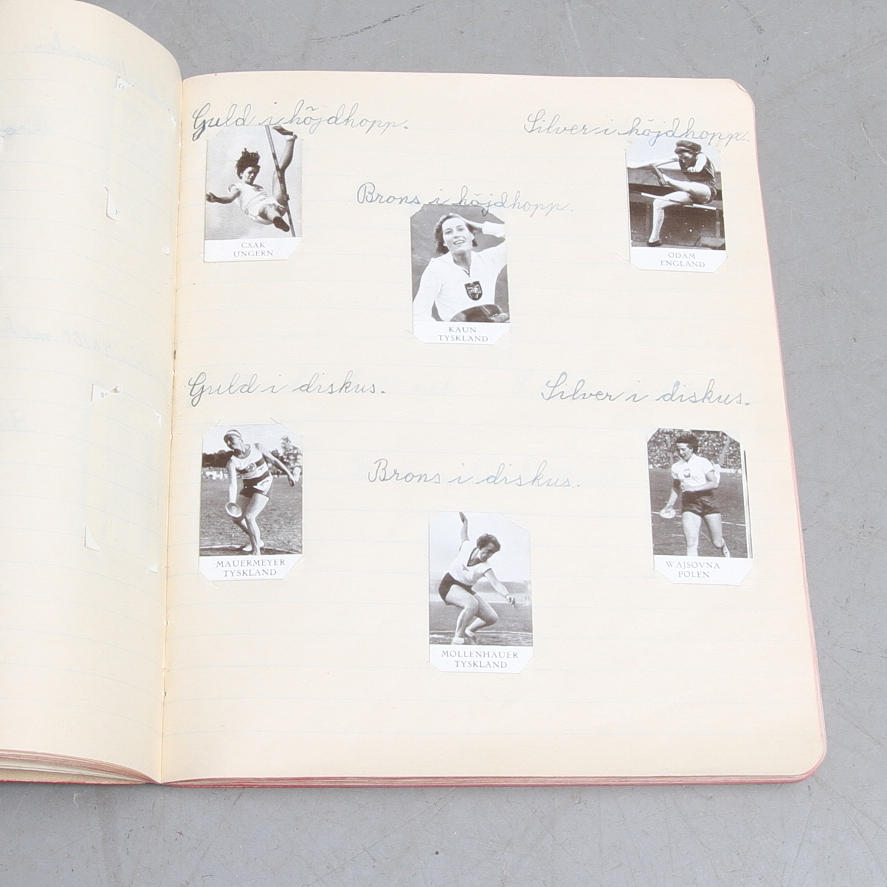 Guld i höjdhopp.
Silver i höjdhopp.
CSAK
UNGERN
Brons i höjdhopp.
ODAM
ENGLAND
KAUN
TYSKLAND
Guld i diskus.
Silver i diskus.
MAUERMEYER
TYSKLAND
Brons i diskus.
WAJSOVNA
POLEN
MOLLENHAUER
TYSKLAND